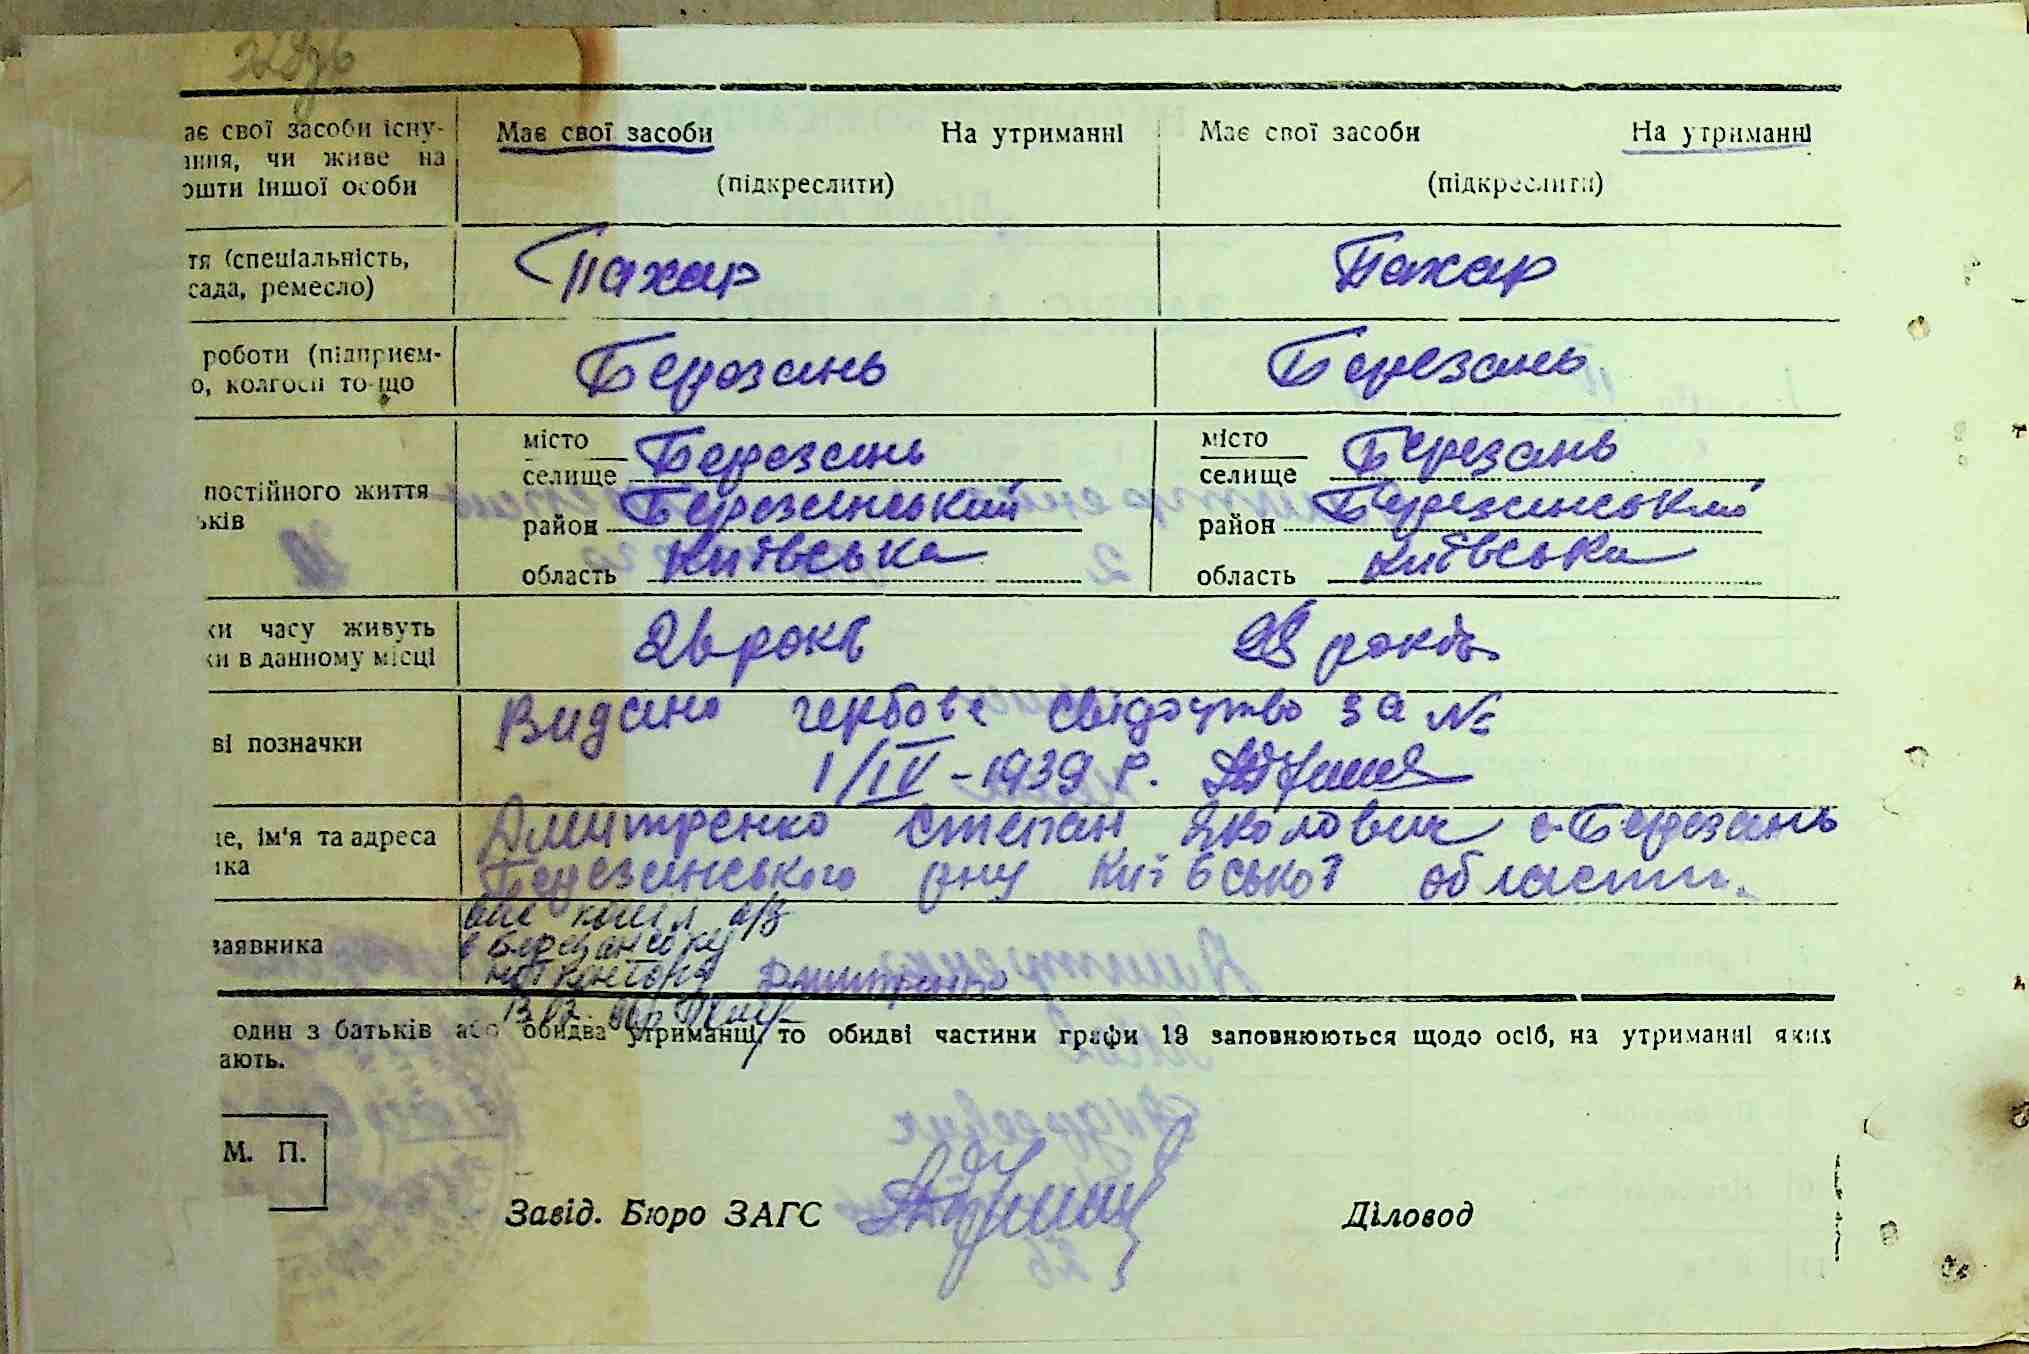 ає свої засоби існу-
ання, чи живе на
ошти іншої особи
Має свої засоби На утриманні
(підкреслити)
Має свої засоби На утриманні
(підкреслити)
тя (спеціальність,
сада, ремесло)
Пахар
Пахар
роботи (підприєм-
о, колгосп то-що
Березань
Березань
постійного життя
ьків
місто
селище Березань
район Березанський
область Київська
місто
селище Березань
район Березанський
область Київська
ки часу живуть
ки в данному місці
26 років
28 років
ві позначки
Видано гербове свідоцтво за №
1/IV-1939 р.
ще, ім'я та адреса
іка
Дмитренко Степан Якович с. Березань
Березанського р-ну Київської области.
заявника
в Березанську
нотконтору
Дмитренко
один з батьків або обидва утриманці, то обидві частини графи 13 заповнюються щодо осіб, на утриманні яких
ають.
М. П.
Завід. Бюро ЗАГС
Діловод